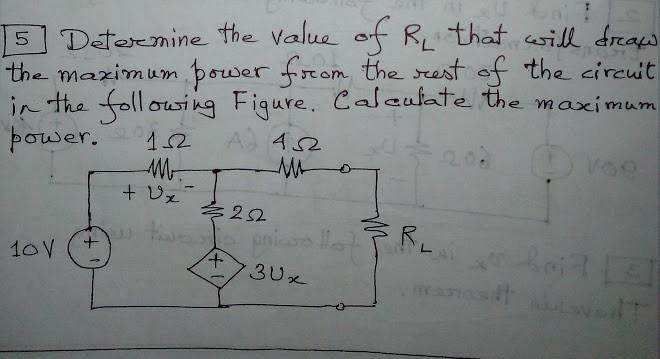 5 Determine the value of RL that will draw
the maximum power from the rest of the circuit
in the following Figure. Calculate the maximum
power.
1Ω 4Ω
+ Vx -
2Ω
10V + - RL
+ - 3Vx